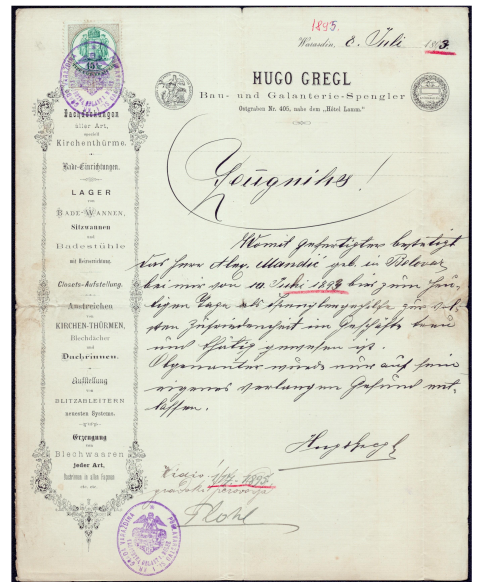 1895.
Warasdin, 8. Juli 1893.
HUGO GREGL
Bau- und Galanterie-Spengler
Ostgraben Nr. 405, nahe dem „Hôtel Lamm."
15
Dacheindeckungen
aller Art,
speciell
Kirchenthürme.
Bade-Einrichtungen.
LAGER
von
BADE-WANNEN,
Sitzwannen
und
Badestühle
mit Heizvorrichtung.
Closets-Aufstellung.
Anstreichen
von
KIRCHEN-THÜRMEN,
Blechdächer
und
Dachrinnen.
Aufstellung
von
BLITZABLEITERN
neuesten Systems.
Erzeugung
von
Blechwaaren
jeder Art,
etc. etc.
Zeugnihs!
Womit gefertigter bestätigt
das Herr Alex. Mandić geb. in Belovar
bei mir von 10. Juli 1892 bis zum heu-
tigen Tage als Spenglergehilfe zur be-
sten Zufriedenheit im Geschäfte treu
und thätig gewesen ist.
Obgenannter wurde nur auf sein
eigenes verlangen Gesund ent-
lassen.
Hugo Gregl
Vidio
1895
gradski
Plohl